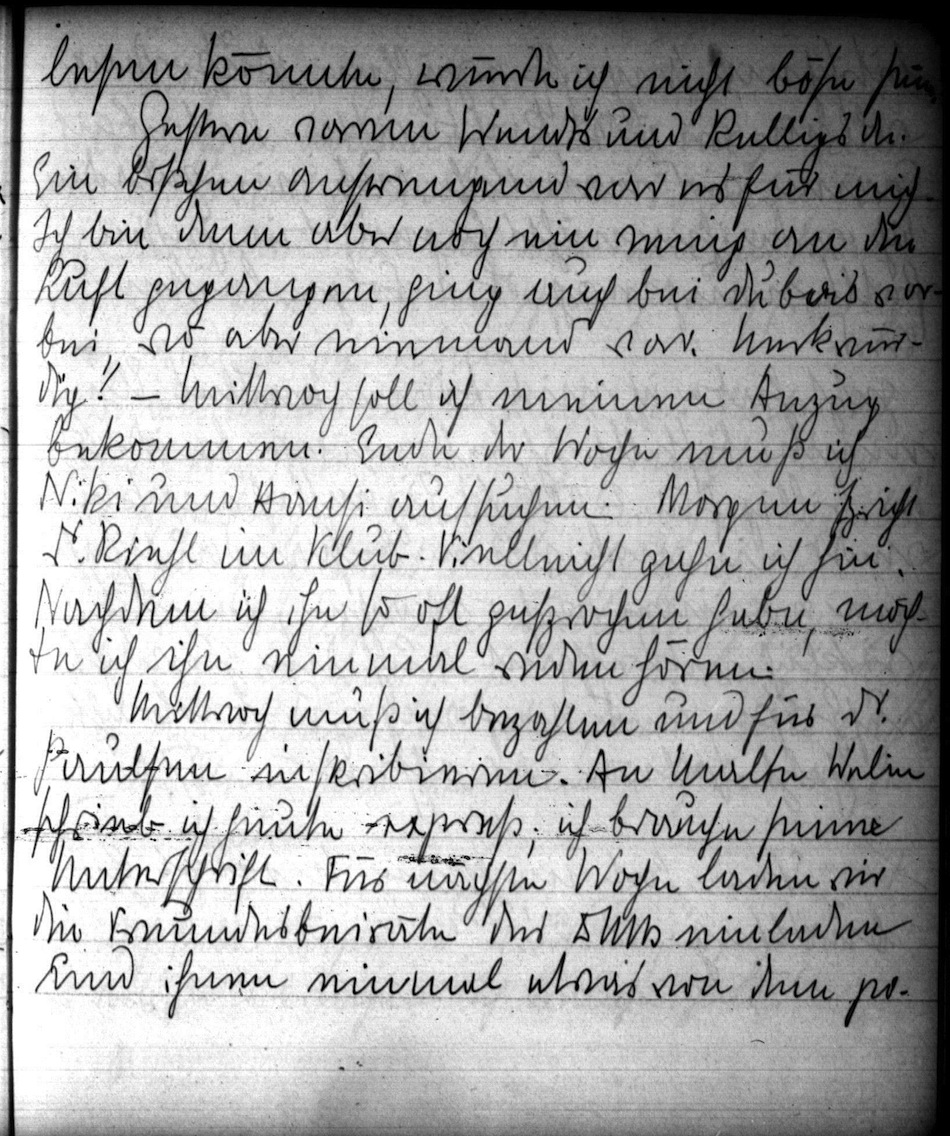 lesen könnte, würde ich nicht böse sein
Gestern waren Wendts und Kulligs da.
Ein bißchen anstrengend war es für mich.
Ich bin dann aber noch ein wenig an die
Luft gegangen, ging auch bei Dubois vor-
bei, wo aber niemand war. Merkwür-
dig! – Mittwoch soll ich meinen Anzug
bekommen. Ende der Woche muß ich
Niki und Hansi aufsuchen. Morgen spricht
Dr. Riehl im Klub. Vielleicht gehe ich hin.
Nachdem ich ihn so oft gesprochen habe, möch-
te ich ihn einmal reden hören.
Mittwoch muß ich bezahlen und für Dr.
Paulsen inskribieren. An Malte Welin
schrieb ich heute expreß; ich brauche seine
Unterschrift. Für nächste Woche laden wir
die Freundesbeiräte des einladen
Und ihnen einmal etwas von dem po-